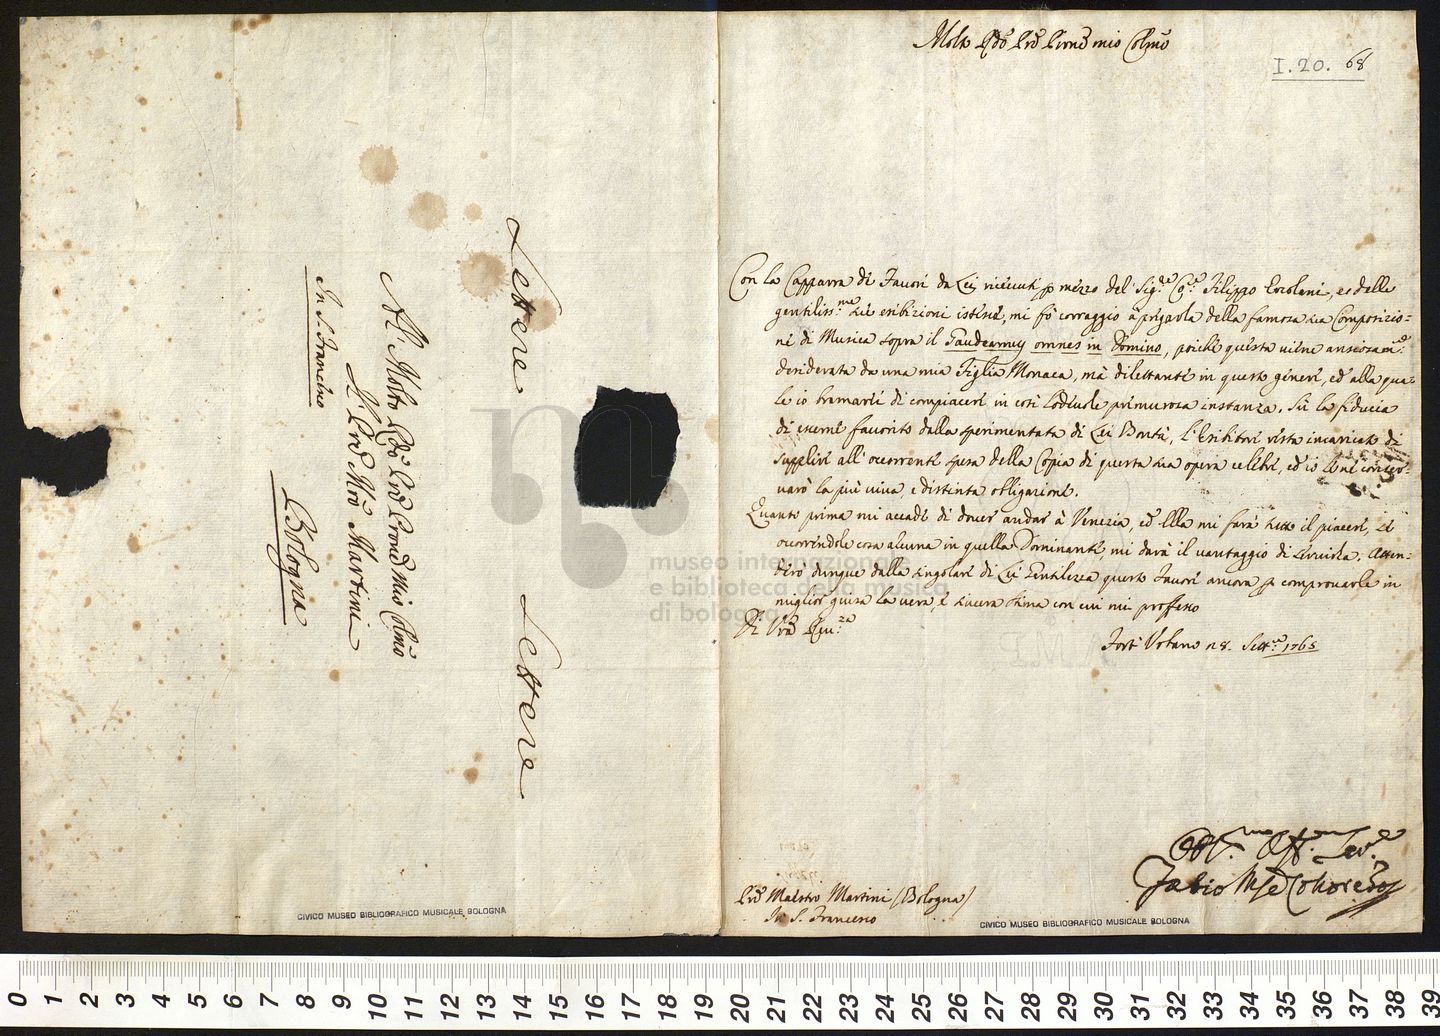 Lettere Lettere
Al Molto Rdo Prd Prone mio Colmo
Il Prd Mro Martini
In S. Francesco Bologna
CIVICO MUSEO BIBLIOGRAFICO MUSICALE BOLOGNA
Molto Rdo Prd Prone mio Colmo
I.20. 68
Con la Capparra di Favori da Lei ricevuti p mezzo del Sig.re Co.e Filippo Ercolani, e delle
gentiliss.me sue esibizioni istesse, mi fò corraggio à pregarla della famosa sua Composizio-
ne di Musica sopra il Gaudeamus omnes in Domino, poichè questa viene
desiderata da una mia Figlia Monaca, mà dilettante in questo genere, ed alla qua-
le io bramarei di compiacere in così lodevole premurosa instanza. Sù la fiducia
di essere favorito dalla sperimentata di Lei Bontà, l'Esibitore resta incaricato di
supplire all'occorrente spesa della Copia di questa sua opera celebre, ed io Le ne conser-
varò la più viva, e distinta obligazione.
Quanto prima mi accade di dover andar à Venezia, ed Ella mi farà tutto il piacere, se
occorrendole cosa alcuna in quella Dominante, mi darà il vantaggio di servirla. Atten-
derò dunque dalla singolare di Lei Gentilezza questo favore ancora p comprovarle in
miglior guisa la vera, e sincera stima con cui mi professo
Di Vra Riv.za
Forte Urbano n 8. Sett.re 1765
Obl.mo Aff.mo Ser.e
Fabio Mse Colloredo
Prd Maestro Martini (Bologna)
In S. Francesco
CIVICO MUSEO BIBLIOGRAFICO MUSICALE BOLOGNA
museo internazionale
e biblioteca della musica
di bologna
0 1 2 3 4 5 6 7 8 9 10 11 12 13 14 15 16 17 18 19 20 21 22 23 24 25 26 27 28 29 30 31 32 33 34 35 36 37 38 39